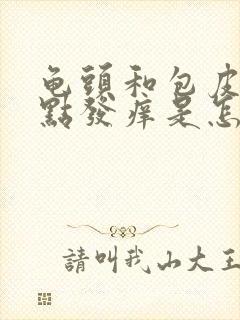 龟頭和包皮
點發痒是怎
請叫我山大王